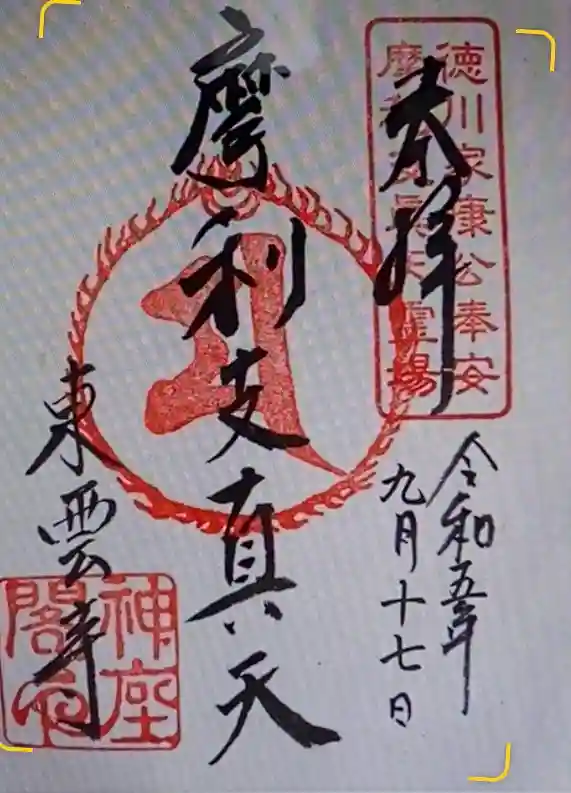 徳川家康公奉安
摩利支眞天霊場
奉拝
令和五年
九月十七日
摩利支真天
東雲寺
神座
閣印